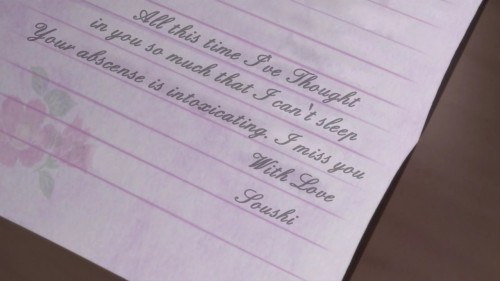 All this time I've Thought
in you so much that I can't sleep
Your abscense is intoxicating. I miss you
With Love
Soushi